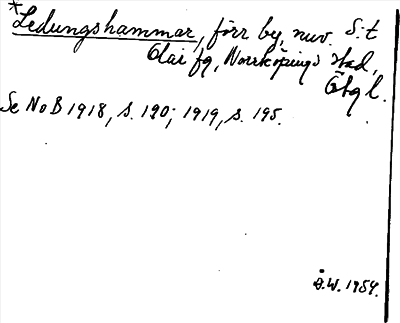 *Ledungshammar, förr by, nuv. S:t
Olai fg, Norrköpings stad,
Ög l.
Se NoB 1918, s. 190; 1919, s. 195.
O.W. 1954.